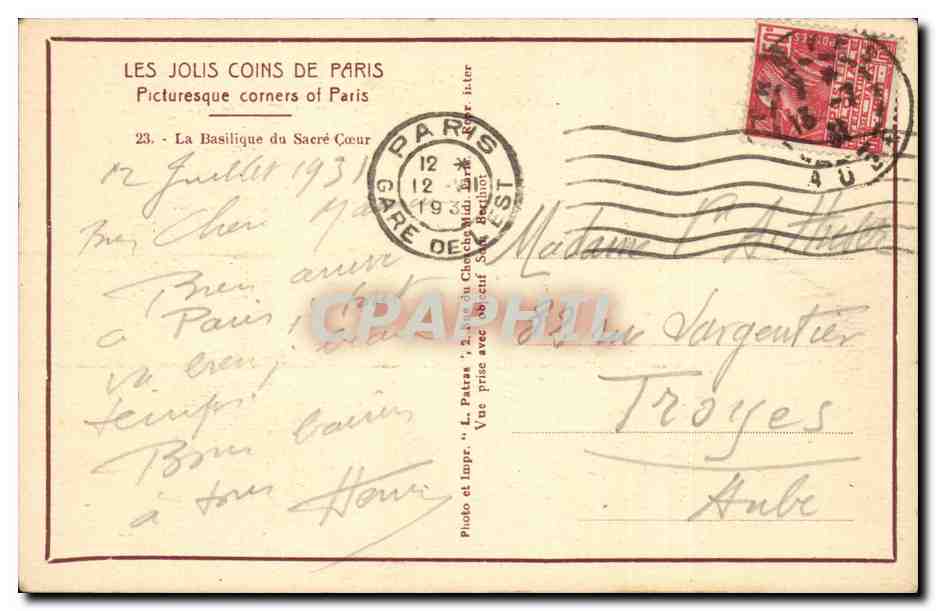 LES JOLIS COINS DE PARIS
Picturesque corners of Paris
23. - La Basilique du Sacré Cœur
12 Juillet 1931
Bien Chère
Bien arrivé
à Paris, tout
va bien, beau
temps.
Bons baisers
à tous Henri
PARIS
12 *
12 VII
193
GARE DE L'EST
Photo et Impr. " L. Patras ", 2, Rue du Cherche-Midi, Paris. Repr. inter
Vue prise avec objectif Som Berthiot
50c
AUBE
Madame
82 rue Largentier
Troyes
Aube
CPAPHIL